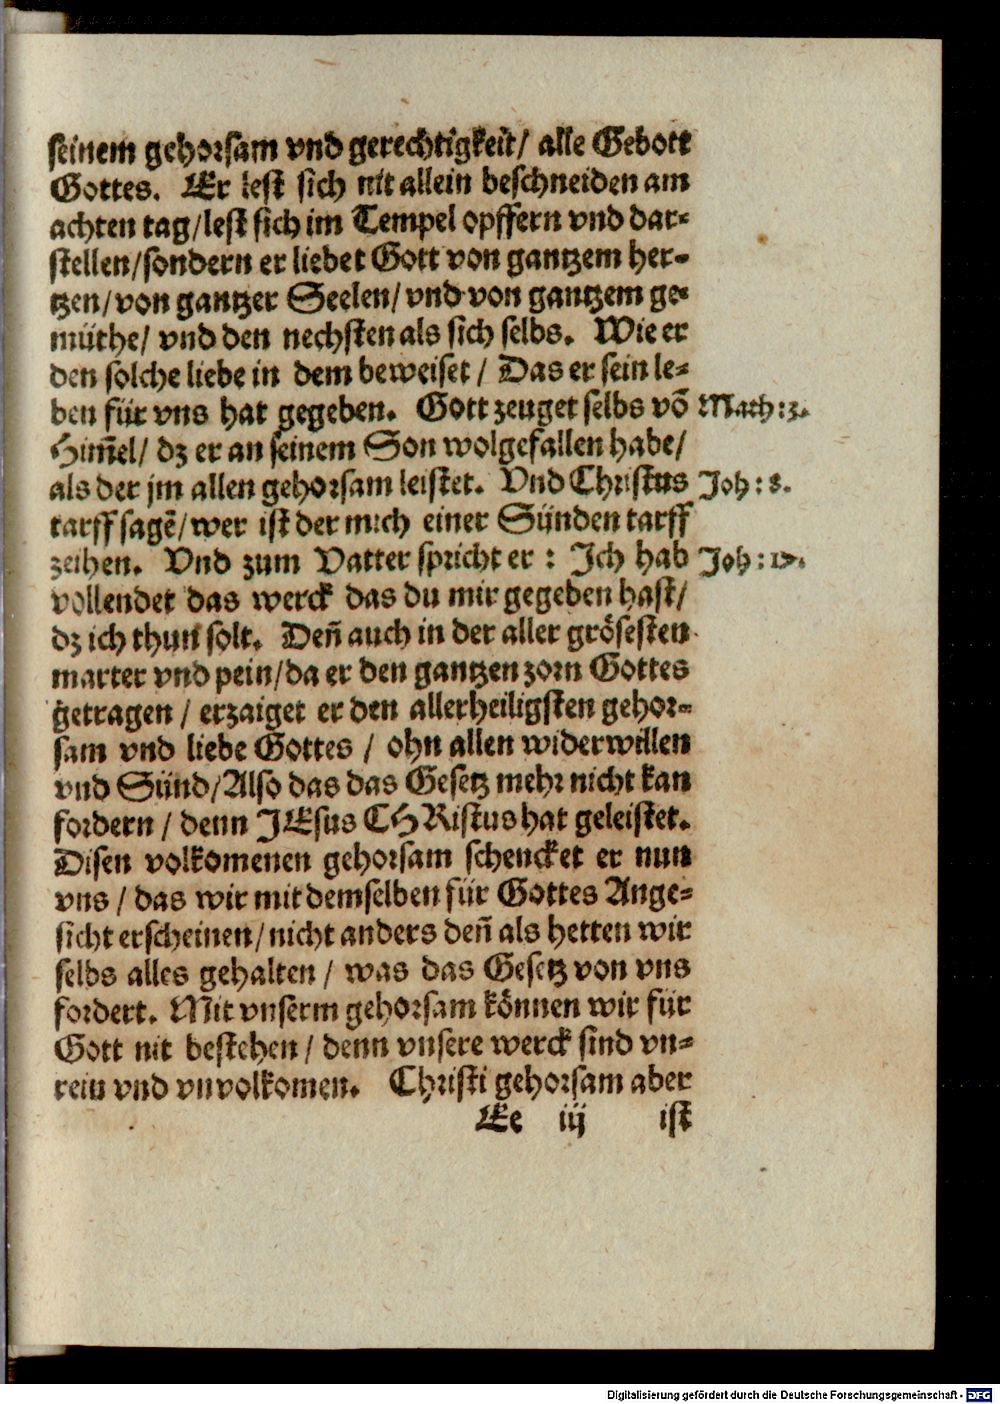 seinem gehorsam vnd gerechtigkeit/ alle Gebott
Gottes. Er lest sich nit allein beschneiden am
achten tag/lest sich im Tempel opffern vnd dar-
stellen/sondern er liebet Gott von gantzem her-
tzen/von gantzer Seelen/vnd von gantzem ge-
müthe/ vnd den nechsten als sich selbs. Wie er
den solche liebe in dem beweiset / Das er sein le-
ben für vns hat gegeben. Gott zeuget selbs võ Math:3.
Him̃el/ dz er an seinem Son wolgefallen habe/
als der jm allen gehorsam leistet. Vnd Christus Joh: 8.
tarff sagẽ/wer ist der mich einer Sünden tarff
zeihen. Vnd zum Vatter spricht er : Ich hab Joh: 17.
vollendet das werck das du mir gegeben hast/
dz ich thun solt. Deñ auch in der aller grösesten
marter vnd pein/da er den gantzen zorn Gottes
getragen / erzaiget er den allerheiligsten gehor-
sam vnd liebe Gottes / ohn allen widerwillen
vnd Sünd/Also das das Gesetz mehr nicht kan
fordern / denn JEsus CHRistus hat geleistet.
Disen volkomenen gehorsam schencket er nun
vns / das wir mit demselben für Gottes Ange-
sicht erscheinen/nicht anders deñ als hetten wir
selbs alles gehalten / was das Gesetz von vns
fordert. Mit vnserm gehorsam können wir für
Gott nit bestehen / denn vnsere werck sind vn-
rein vnd vnvolkomen. Christi gehorsam aber
Ee iij ist
Digitalisierung gefördert durch die Deutsche Forschungsgemeinschaft - DFG